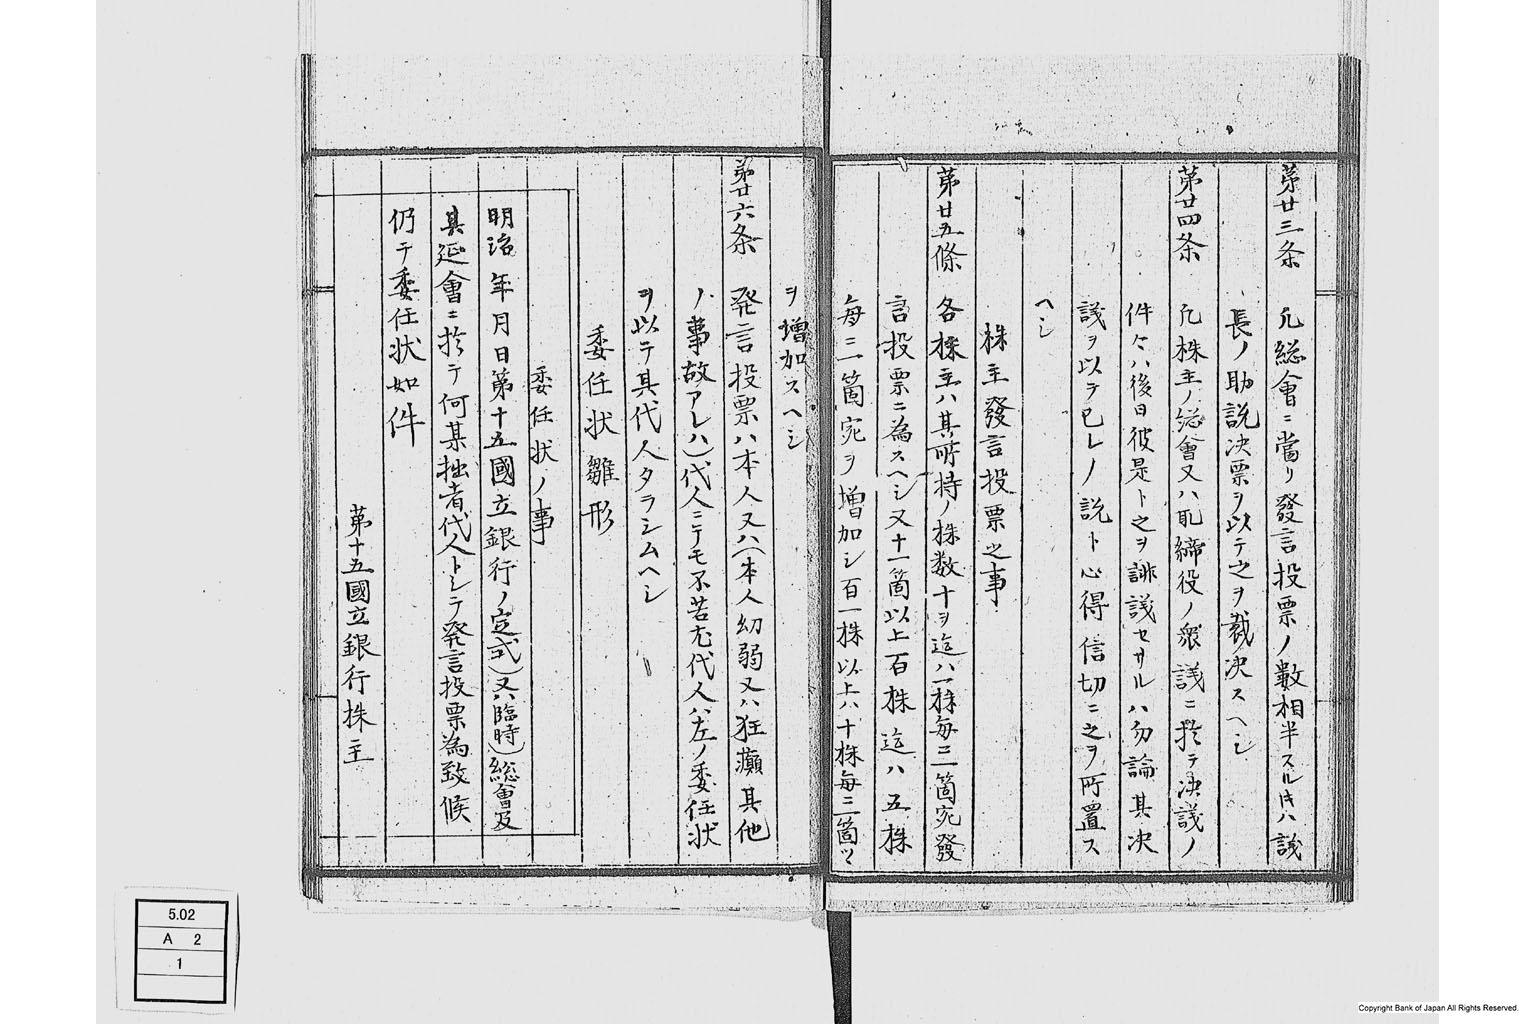 第廿三条 凡総會ニ當リ發言投票ノ數相半スル𪜈ハ議
長ノ助説决票ヲ以テ之ヲ裁决スヘシ
第廿四条 凡株主ノ総會又ハ取締役ノ衆議ニ於テ决議ノ
件々ハ後日彼是ト之ヲ誹議セサルハ勿論其决
議ヲ以テ己レノ説ト心得信切ニ之ヲ所置ス
ヘシ
株主發言投票之事
第廿五條 各株主ハ其所持ノ株数十ヲ迄ハ一株毎ニ一箇宛發
言投票ニ為スヘシ又十一箇以上百株迄ハ五株
毎ニ一箇宛ヲ増加シ百一株以上ハ十株毎ニ一箇ツヽ
ヲ増加スヘシ
第廿六条 発言投票ハ本人又ハ(本人幼弱又ハ狂癲其他
ノ事故アレハ)代人ニテモ不苦尤代人ハ左ノ委任状
ヲ以テ其代人タラシムヘシ
委任状雛形
委任状ノ事
明治 年月日第十五國立銀行ノ定式)又ハ臨時)総會及
其延會ニ於テ何某拙者代人トシテ発言投票為致候
仍テ委任状如件
第十五國立銀行株主
5.02
A 2
1
Copyright Bank of Japan All Rights Reserved.